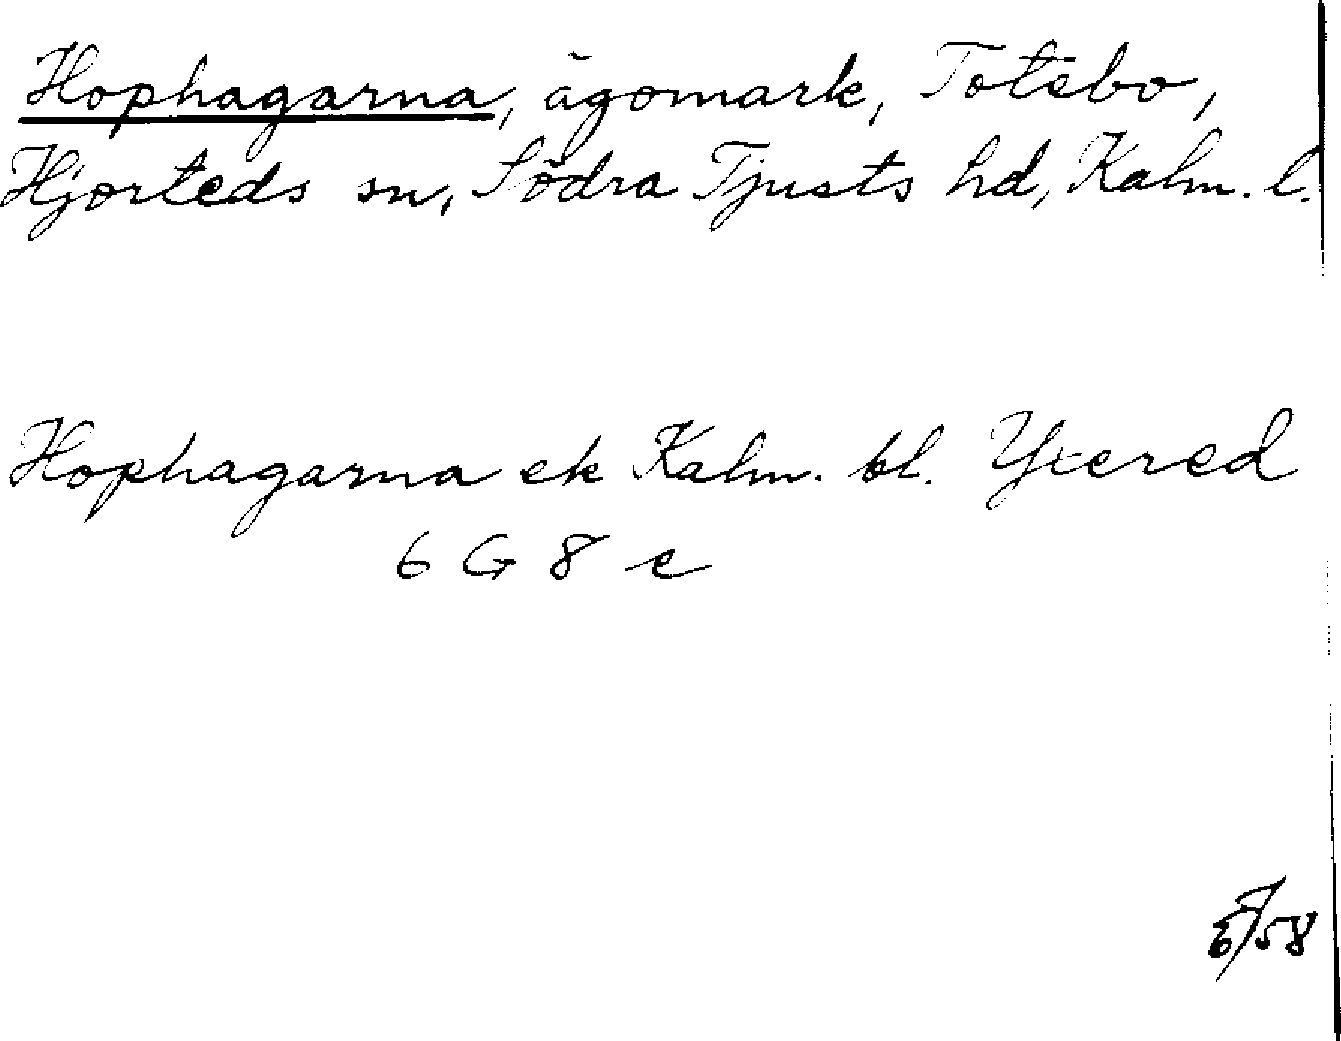 Hophagarna, ägomark, Totebo,
Hjorteds sn, Södra Tjusts hd, Kalm. l.
Hophagarna ek Kalm. bl. Yxered
6 G 8 e